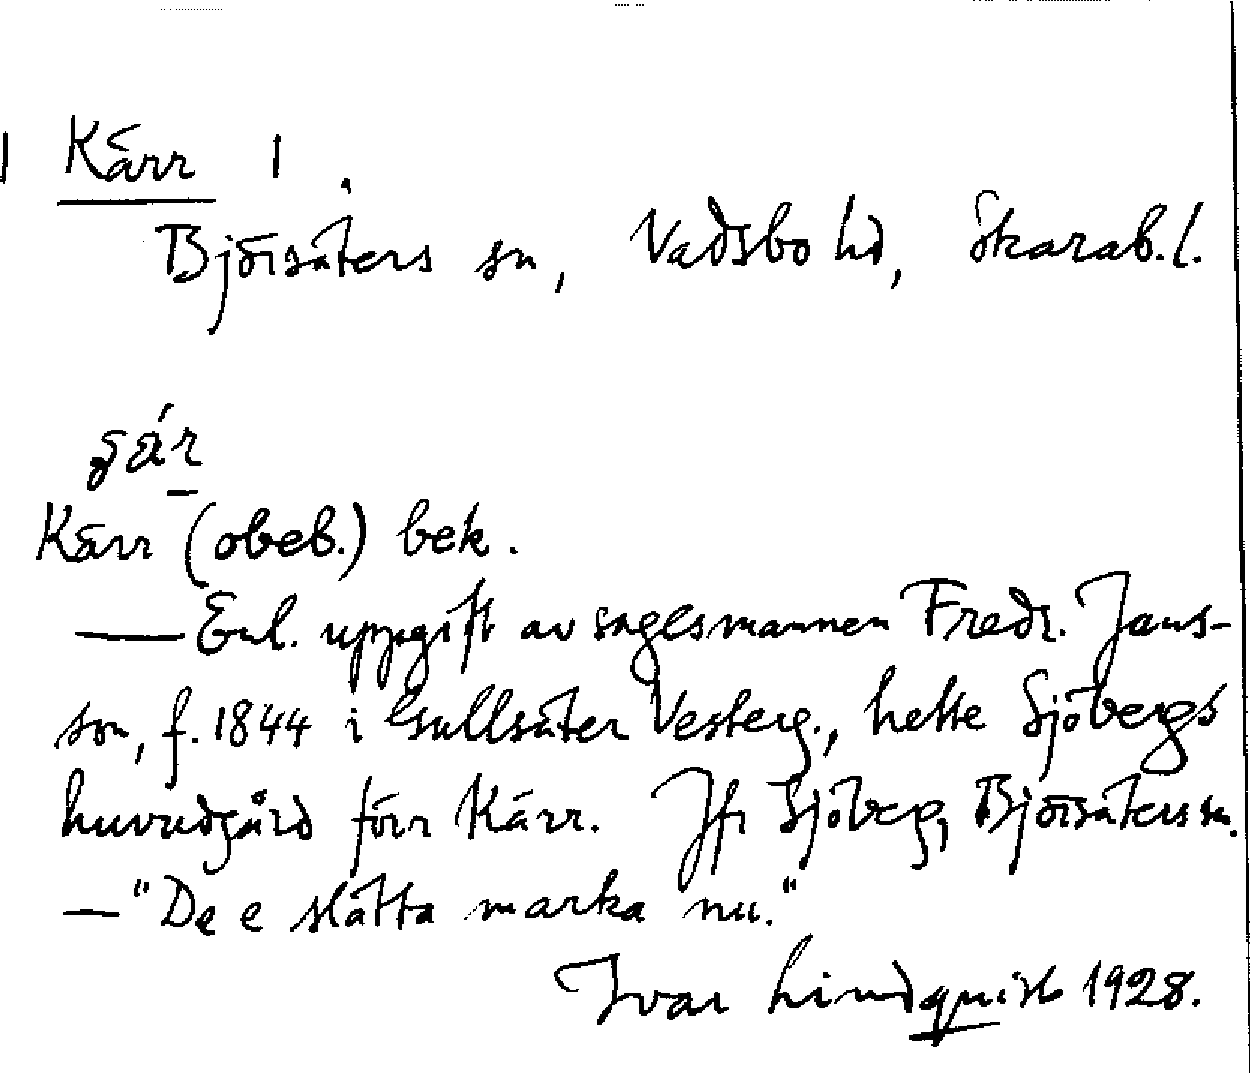 Kärr 1.
Björsäters sn, Vadsbo hd, Skarab.l.
Kärr (obeb.) bek.
— Enl. uppgift av sagesmannen Fredr. Jans-
son, f. 1844 i Gullsäter Vesterg., hette Sjöbergs
huvudgård förr Kärr. Jfr Sjöberg, Björsäters sn.
— "De e slätta marka nu."
Ivar Lindquist 1928.